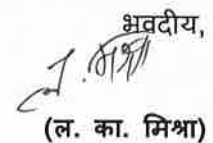 भवदीय,
ल. मिश्रा
(ल. का. मिश्रा)